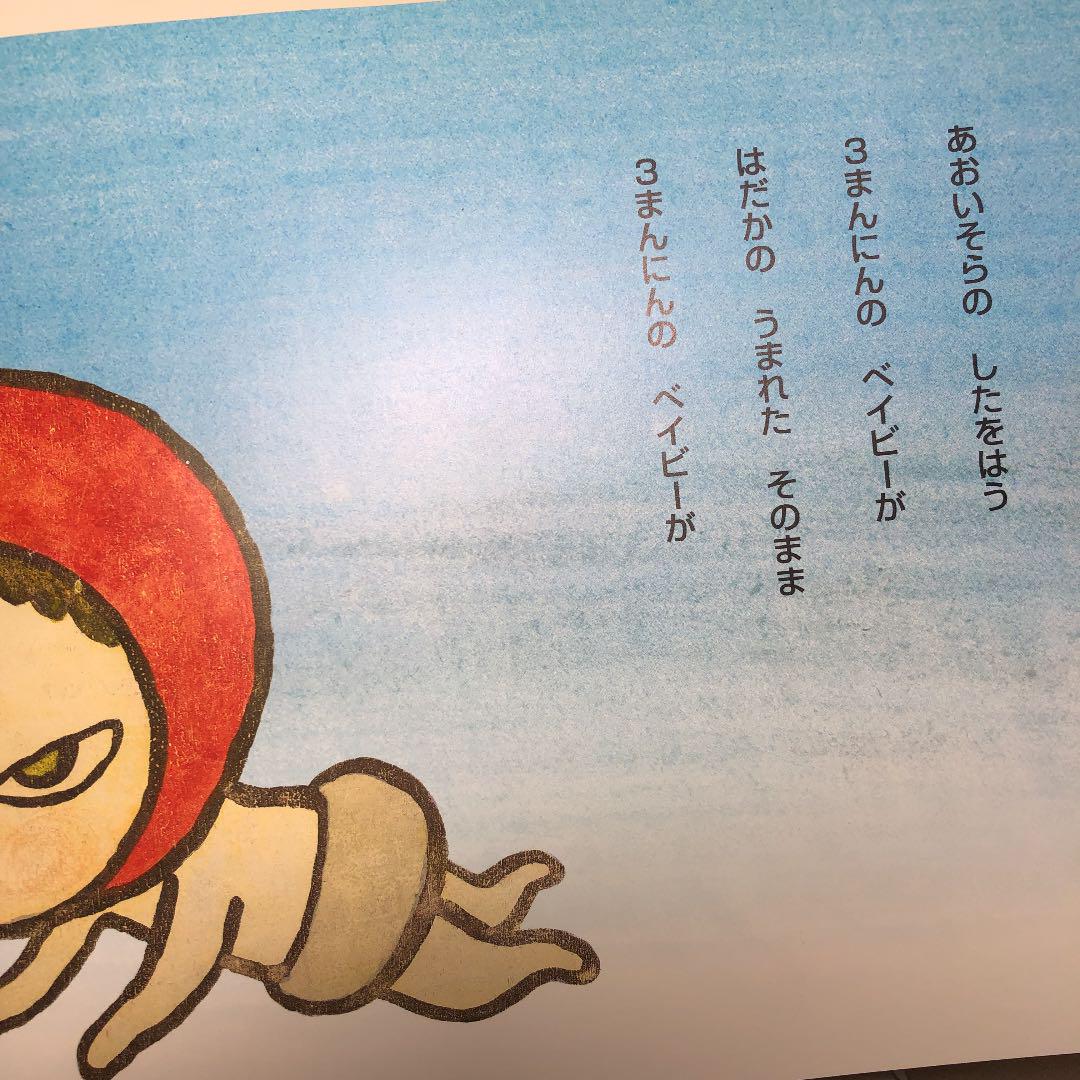 あおいそらの　したをはう
3まんにんの　ベイビーが
はだかの　うまれた　そのまま
3まんにんの　ベイビーが